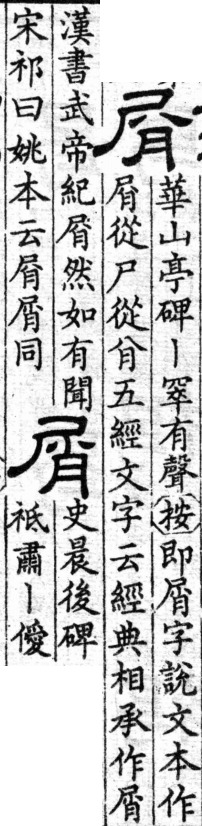 屑
華山亭碑丨窣有聲按即屑字說文本作
屑從尸從五經文字云經典相承作屑
漢書武帝紀屑然如有聞
宋祁曰姚本云屑屑同
屑
史晨後碑
祗肅丨僾